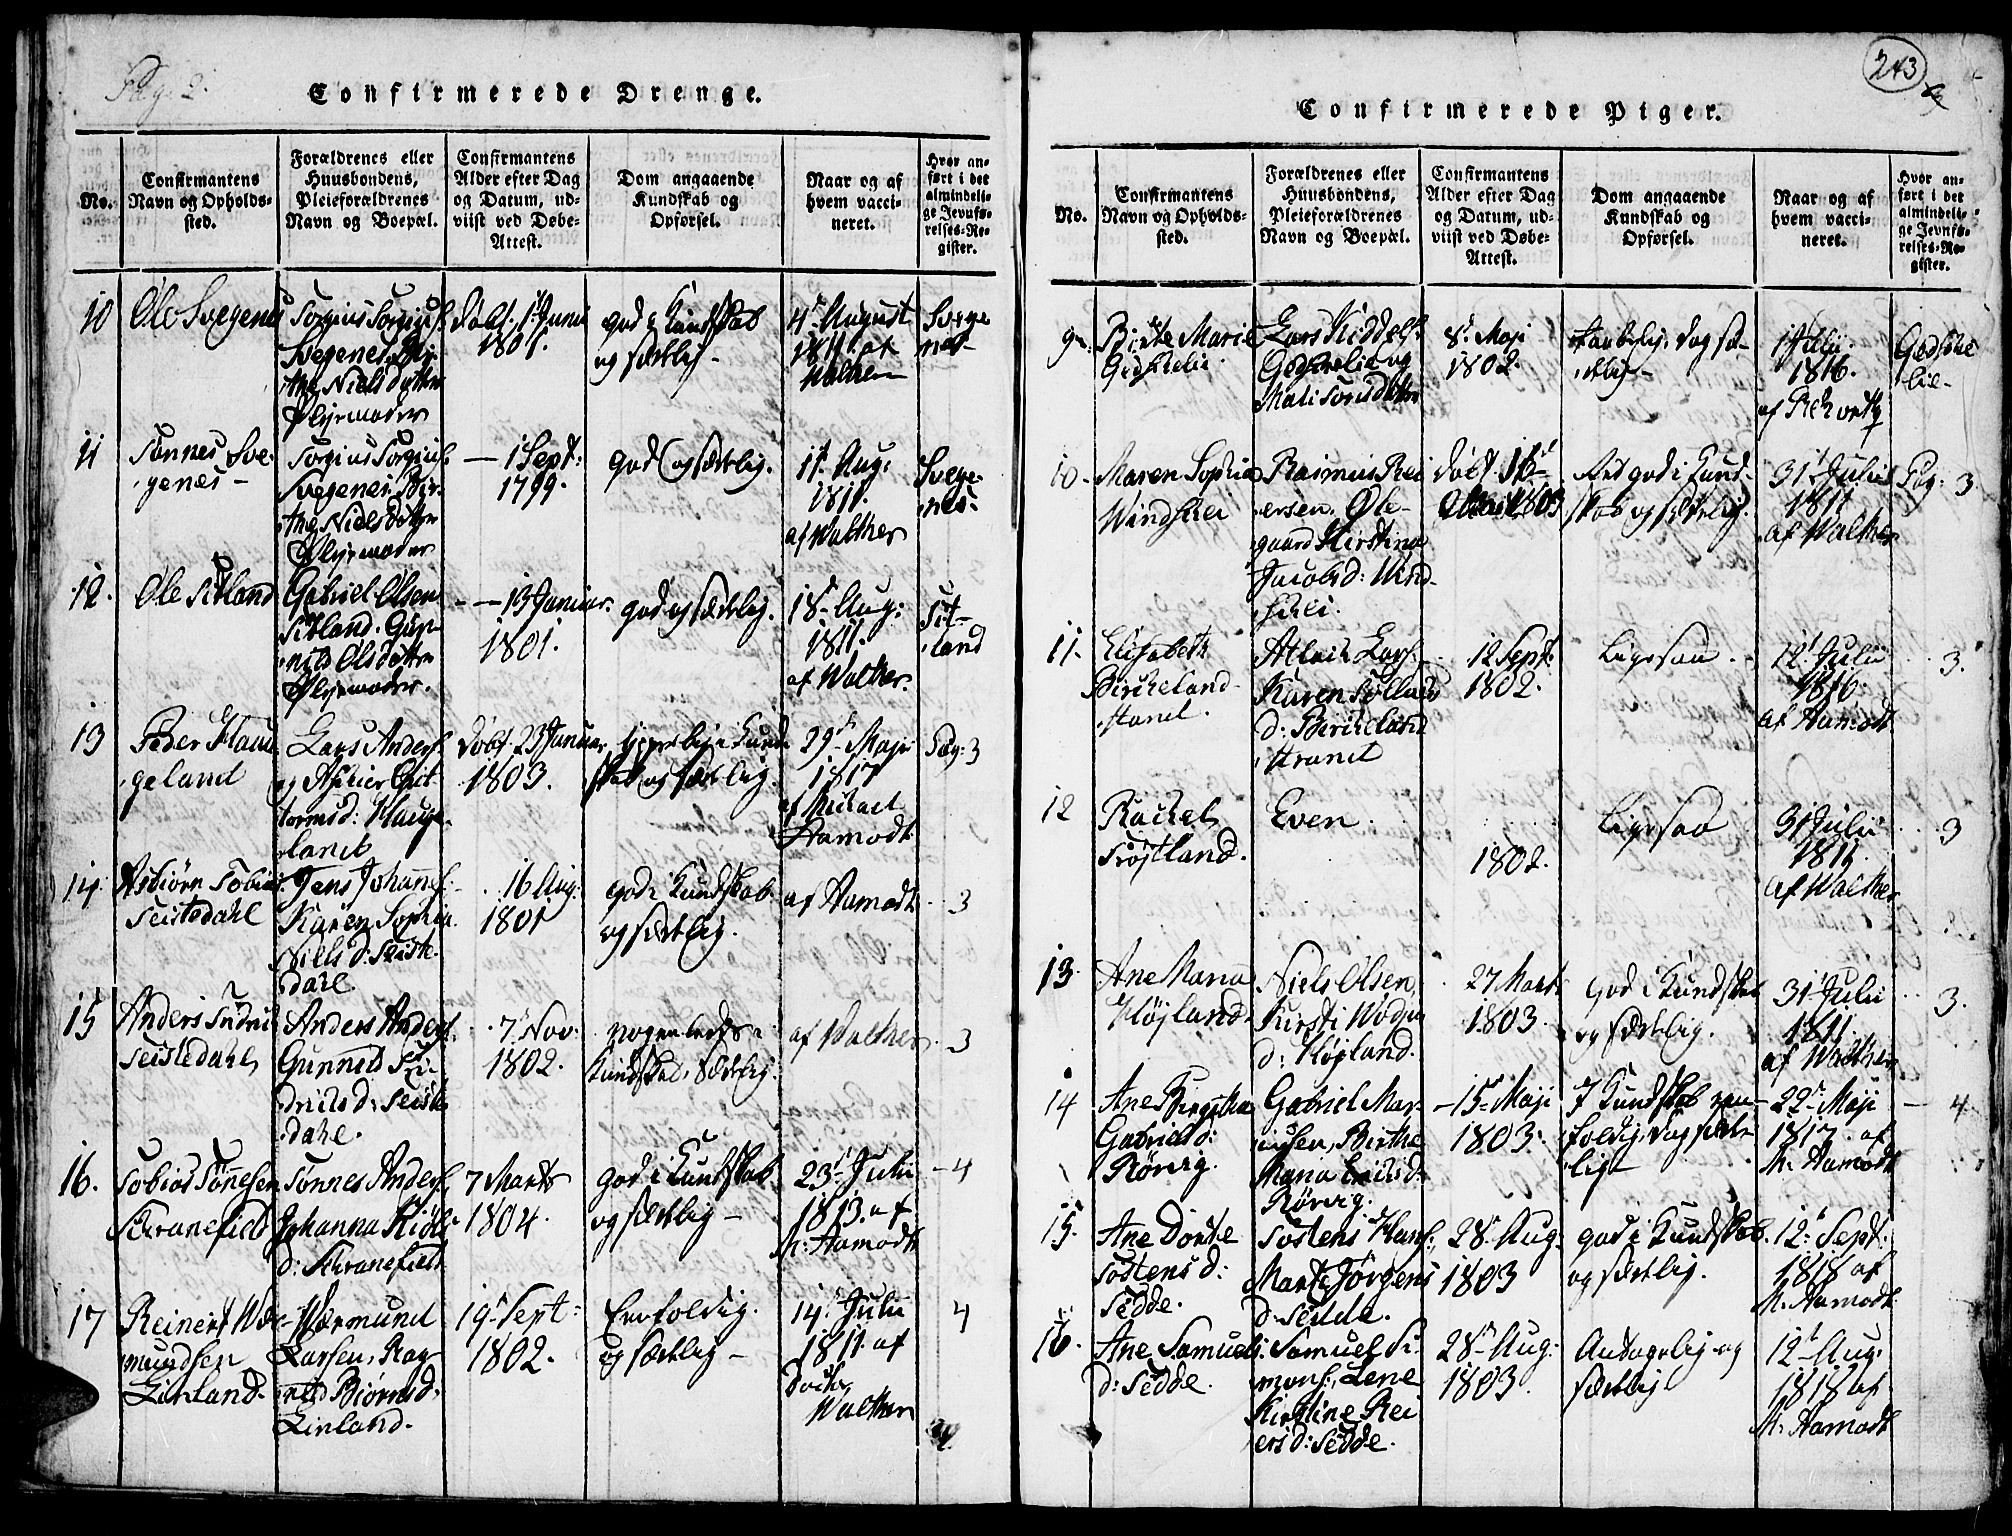 Pag. 2.
Confirmerede Drenge.
No.
Confirmantens Navn og Opholds-sted.
Forældrenes eller Huusbondens, Pleieforældrenes Navn og Boepæl.
Confirmantens Alder efter Dag og Datum, ud-viist ved Døbe-Attest.
Dom angaaende Kundskab og Opførsel.
Naar og af hvem vacci-neret.
Hvor an-ført i det almindeli-ge Jevnfø-relses-Re-gister.
10
Ole Svegenes
Sørgius Sørgius:
Svegenes
Niels Dotter
Plejemoder
Døbt: 1 Junii
1801.
god i Kundskab
og sædelig-
4 August
1811 af
Walther
Svege
nes-
11
Sønnes Sve-
genes-
Sørgius Sørgius:
Svegenes. Bir-
the Niels Dotter
Plejemoder
- 1 Sept:
1799.
god og sædelig.
11 Aug:
1811.
af Walther
Svege-
nes.
12.
Ole Sitland
Gabriel Olsen
Sitland. Gun-
nild Olsdotter
Plejemoder.
- - 13 Januar.
1801.
god og sædelig.
18 Aug:
1811.
af Walther.
Sit-
land
13
Peder Hau-
geland
Lars Anders:
og
tormsd: Hauge-
land
Døbt 23 Januar
1803.
i Kund-
skab og sædelig
29 Maji
1817
af Michael
Aamodt
Pag: 3
14.
Asbiørn Tobias
Seistedahl
Jens Johannes:
Karen Sophia
Niels d: Seiste-
dahl.
16 Aug:
1801
god i Kundskab
og sædelig.
af Aamodt
3
15
Anders
Seistedahl
Anders Anders:
Gunnild
d: Seiste
dahl.
7 Nov:
1802.
nogenledes i
Kundskab, sædelig.
af Walther
3
16.
Tobias Tønnesen
Skranefield
Tønnes Anders:
Johanna
d: Skranefield
7 Marts
1804.
god i Kundskab
og sædelig-
23 Julii
1813. af
M: Aamodt
-4
17
Reinert Wær-
mundsen
Linland.
Wærmund
Larsen, Rag-
nild Biørnsd:
Linland.
19 Sept:
1802.
Eenfoldig.
og sædelig-
14 Julii
1811. af
Walther
4
243
Confirmerede Piger.
No.
Confirmantens Navn og Opholds-sted.
Forældrenes eller Huusbondens, Pleieforældrenes Navn og Boepæl.
Confirmantens Alder efter Dag og Datum, ud-viist ved Døbe-Attest.
Dom angaaende Kundskab og Opførsel.
Naar og af hvem vacci-neret.
Hvor an-ført i det almindeli-ge Jevnfø-relses-Re-gister.
9.
Birte Marie
Lars
og
8 Maji
1802.
1 Julii
1816.
af
10.
Maren Sophia
Rasmus Rei
ersen, Ole-
gaard Kirstina
Jacobsd:
Døbt 16
1803
god i Kund-
skab og sædelig.
31 Julii
1811
af Walther
Pag: 3
11.
Elisabeth
Bircheland
strand.
Lars:
Karen
d: Bircheland
strand
12 Sept:
1802.
Ligesaa.
12 Julii
1816.
af Aamodt
3.
12
Rachel
Even
1802.
Ligesaa
31 Julii
1811.
af Walther
3
13.
Ane Maria
Højland.
Niels Olsen,
Kirsti
d: Højland.
27 Marts
1803.
god i Kundskab
og sædelig.
31 Julii
1811.
af Walther
3.
14
Ane Birgitha
Gabriels d:
Rørvig.
Gabriel Mar-
iusen, Birthe
Maria
Rørvig.
- 15 Maji
1803.
I Kundskab een-
foldig, dog sæde-
lig
22 Maji
1817. af
M: Aamodt
- 4
15.
Ane Dorte
Tostens d:
Sedde.
Tostens Hans:
Jørgens
d: Sedde.
28 Aug:
1803
god i Kundskab
og sædelig.
12 Sept:
1818 af
M. Aamodt
16.
Ane Samuels
d: Sedde.
Samuel Si-
mons:, Lene
Kirstine Rei
ers d: Sedde.
28 Aug:
1803.
Antagelig og
sædelig
12 Aug:
1818 af
M. Aamodt